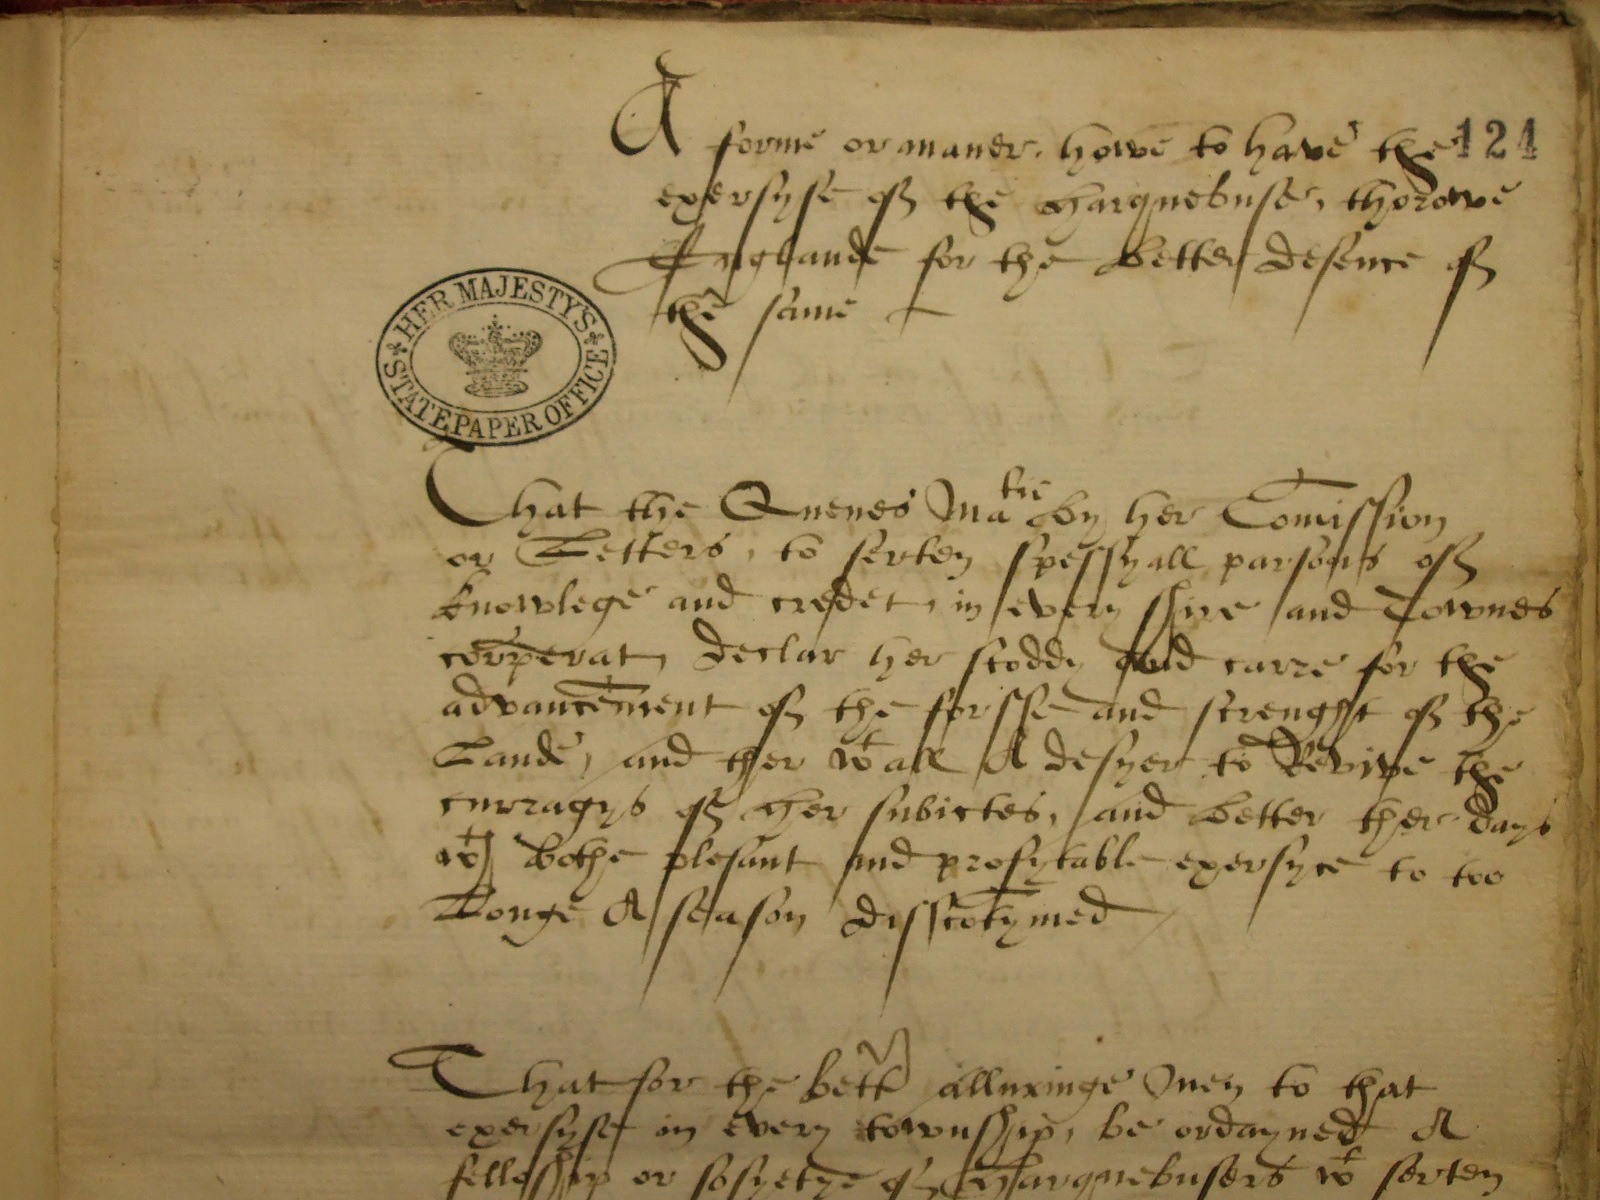 A forme or maner howe to have the 124
exersyse of the Harquebuse, thorowe
Englande for the better defence of
the same
HER MAJESTY'S
STATE PAPER OFFICE
That the Quenes Matie by her Comission
or Letters, to serten spessyall parsons of
knowlege and credet, in every shire and Townes
corperat, declar her stoddy and carre for the
advancement of the forsse and strenght of the
Lande, and ther wt all A desyer to Revive the
curragys of her subictes, and better ther days
wt bothe plesant and profytable exersyce to too
Longe A season disscotynued
That for the bettr alluringe Men to that
exersyse in every township, be ordayned A
felloship or sosyetye of Harquebusers wt serten